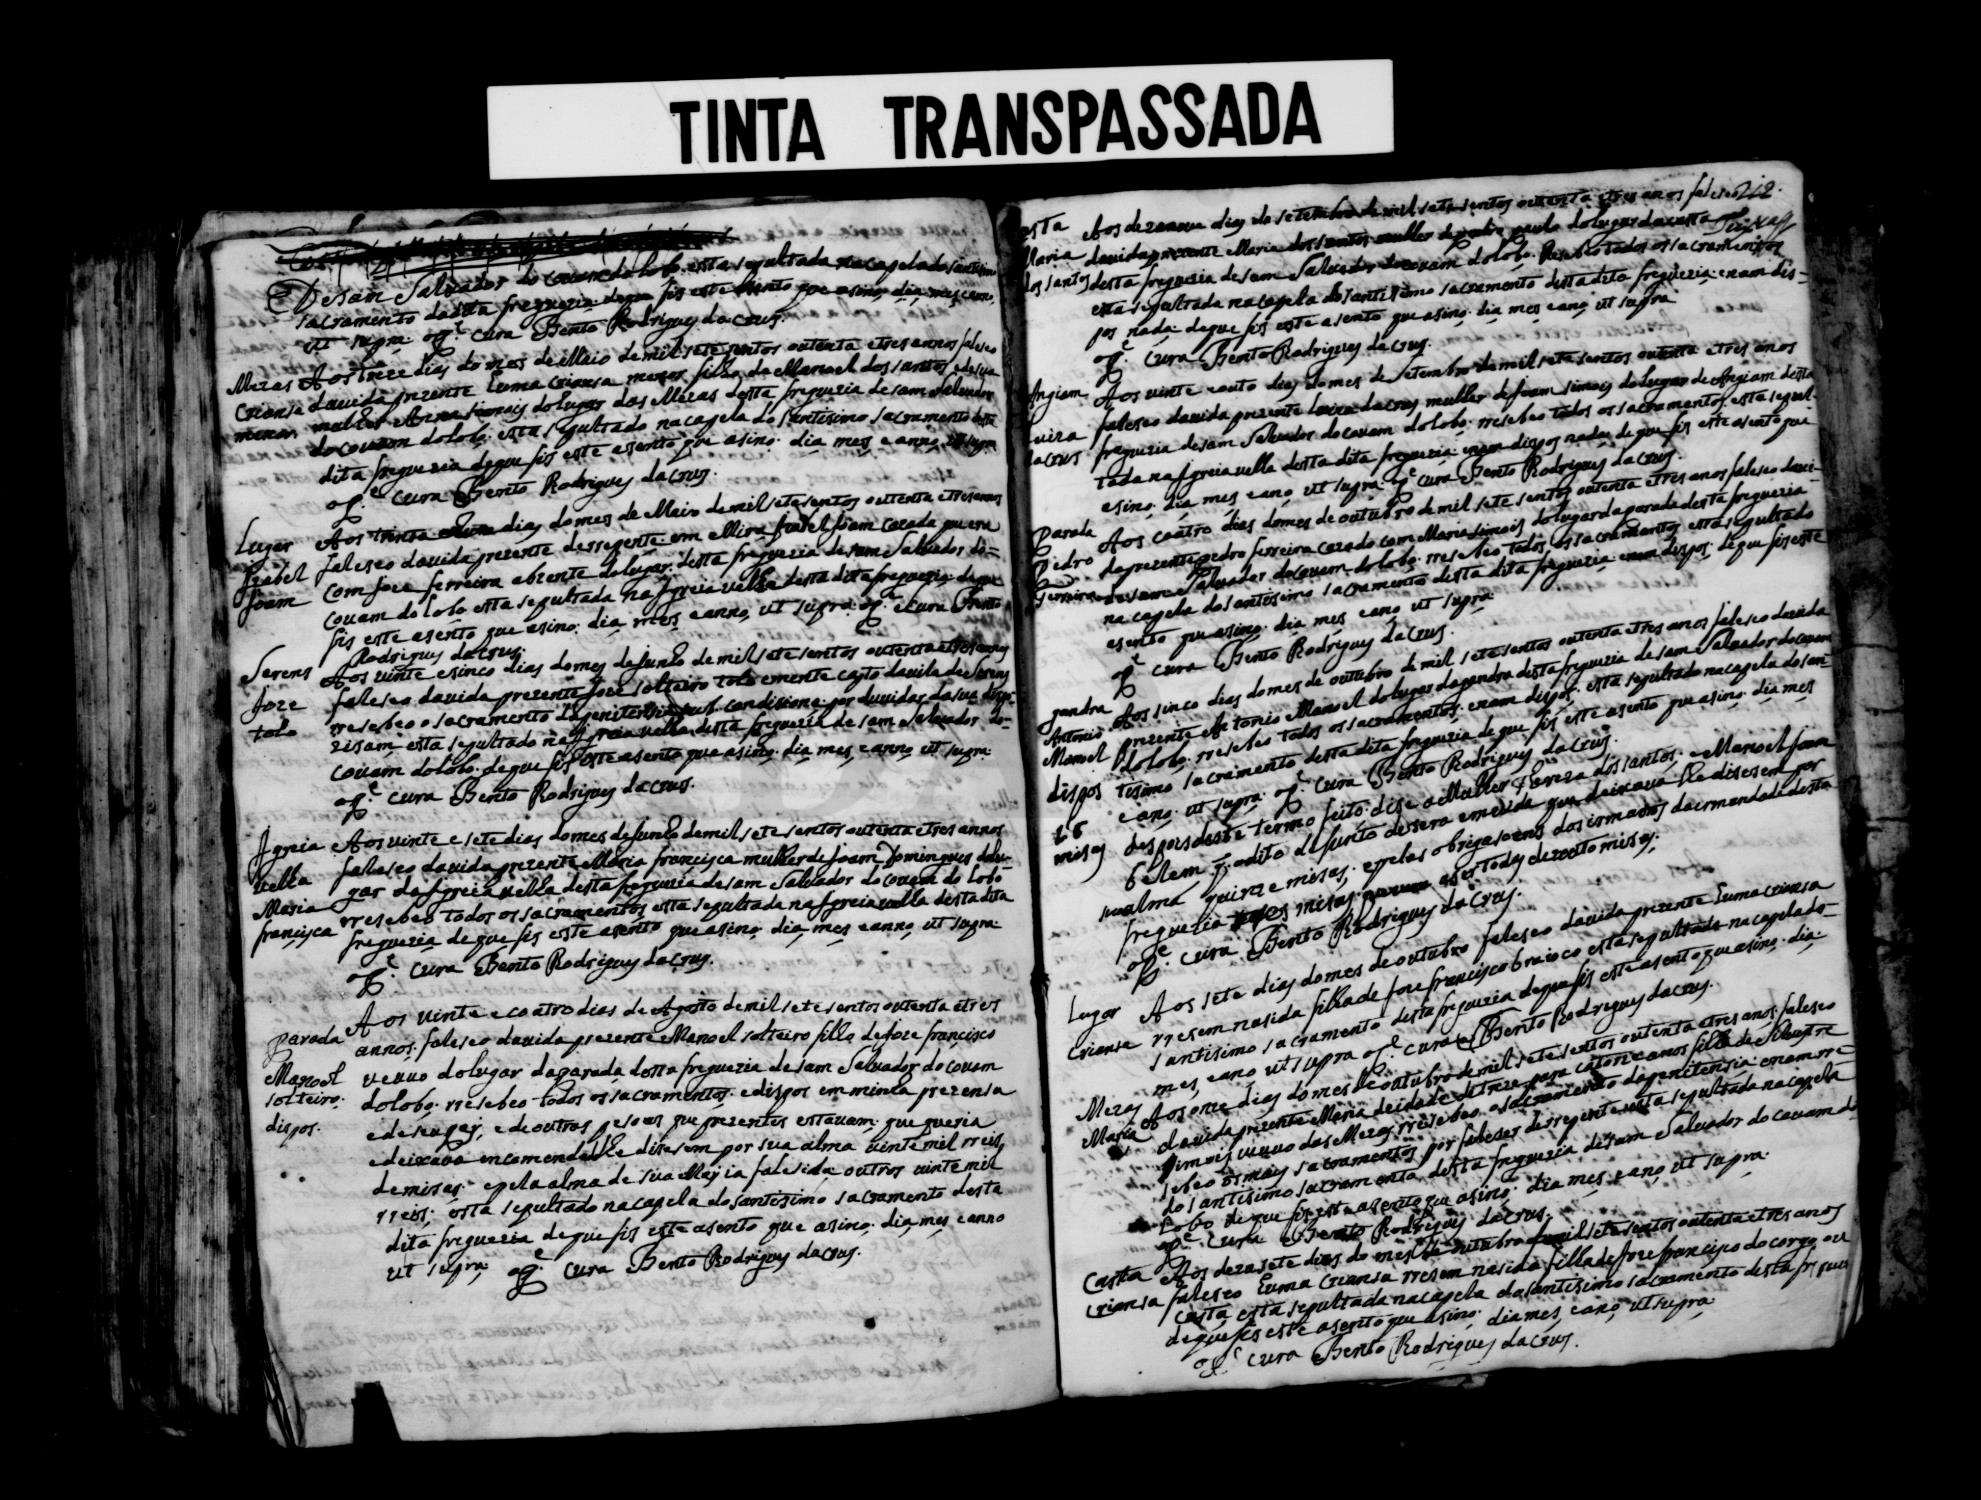 TINTA TRANSPASSADA
De sam Salvador do Couam do lobo. esta sepultada na capela do santisimo
sacramento da dita freguezia de que fis este asento que asino, dia, mes, e ano,
ut supra. o P.e cura Bento Rodrigues da Crus.
Mezas Aos treze dias do mes de Maio de mil sete sentos outenta e tres annos faleseo
Criansa da vida prezente huma criansa menor filha de Manoel dos santos e de sua
menor mulher Anna simois do lugar das Mezas desta freguezia de sam salvador
do couam do lobo. esta sepultado na capela do santisimo sacramento desta
dita freguezia de que fis este asento que asino. dia mes, e anno, ut supra
o P.e cura Bento Rodrigues da Crus.
Lugar Aos trinta dias do mes de Maio de mil sete sentos outenta e tres annos
Izabel faleseo da vida prezente derrepente em Mira Izabel Joam cazada que era
Joam com Joze ferreira abzente do lugar. desta freguezia de sam Salvador do=
couam do Lobo esta sepultada na Igreia vella desta dita freguezia de que
fis este asento que asino. dia, mes, e anno, ut supra. o P.e cura Bento
Rodrigues da Crus.
Serens Aos vinte e sinco dias do mes de Junho de mil sete sentos outenta e tres annos
Joze faleseo da vida prezente Joze solteiro tolo emente capto da vila de Serens
tolo rresebeo o sacramento da penitensia sub condisione. por duvidas da sua dispo-
zisam esta sepultado na Igreia vella desta freguezia de sam salvador do-
couam do lobo. de que fis este asento que asino. dia, mes, e anno, ut supra.
o P.e cura Bento Rodrigues da Crus.
Igreia Aos vinte e sete dias do mes de Junho de mil sete sentos outenta e tres annos
Vella faleseo da vida prezente Maria francisca mulher de Joam Domingues do lu-
Maria gar da Igreia vella desta freguezia de sam Salvador do couam do Lobo
francisca rresebeo todos os sacramentos esta sepultada na Igreia vella desta dita
freguezia de que fis este asento que asino. dia, mes, e anno, ut supra.
o P.e cura Bento Rodrigues da Crus.
Aos vinte e coatro dias de Agosto de mil sete sentos outenta e tres
parada annos. faleseo da vida prezente Manoel solteiro fillo de Joze francisco
Manoel veuvo do lugar da parada desta freguezia de sam Salvador do couam
solteiro. do lobo. rresebeo todos os sacramentos. e dispos em minha prezensa
dispos. e de seu pay, e de outras pesoas que prezentes estavam. que queria
e deixava encomendado lhe disesem por sua alma vinte mil rreis,
de misas. e pela alma de sua May ia falesida, outros vinte mil
rreis; esta sepultado na capela do santisimo sacramento desta
dita freguezia de que fis este asento que asino. dia, mes, e anno
ut supra. o P.e cura Bento Rodrigues da Crus.
212.
Costa Aos dezanove dias de setembro de mil sete sentos outenta e tres anos faleseo
Maria da vida prezente Maria dos santos mulher de paulo do lugar da costa
dos santos desta freguezia de sam Salvador do couam do lobo. Resebeo todos os sacramentos
esta sepultada na capela do santisimo sacramento desta dita freguezia. e nam dis-
pos nada. de que fis este asento que asino. dia mes, e ano, ut supra
o P.e cura Bento Rodrigues da Crus.
Angiam Aos vinte e outo dias do mes de Setembro de mil sete sentos outenta e tres anos
Luiza faleseo da vida prezente Luiza da crus mulher de Joam simois do lugar de Angiam desta
da Crus freguezia de sam Salvador do couam do lobo. rresebeo todos os sacramentos, esta sepul-
tada na Igreia vella desta dita freguezia. e nam dispos nada. de que fis este asento que
asino. dia, mes, e ano, ut supra. o P.e cura Bento Rodrigues da Crus.
Parada Aos coatro dias do mes de outubro de mil sete sentos outenta e tres anos faleseo da vi-
Pedro da prezente pedro ferreira cazado com Maria simois do lugar da parada desta freguezia
Ferreira de sam Salvador do couam do lobo. rresebeo todos os sacramentos esta sepultado
na capela do santisimo sacramento desta dita freguezia. e nam dispos. de que fis este
asento que asino. dia, mes, e ano, ut supra.
o P.e cura Bento Rodrigues da Crus.
gandra Aos sinco dias do mes de outubro de mil sete sentos outenta e tres anos faleseo da vida
Antonio prezente Antonio Manoel do lugar da gandra desta freguezia de sam Salvador do couam
Manoel do lobo. rresebeo todos os sacramentos. e nam dispos. esta sepultado na capela do san-
dispos tisimo sacramento desta dita freguezia de que fis este asento que asino. dia mes
e ano, ut supra. o P.e cura Bento Rodrigues da Crus.
18 despois deste termo feito. dise a Mulher Tereza dos santos, e Manoel Joam
misas Belem q. o dito defunto disera em vida que deixava lhe disesem por
sua alma quinze misas; e pelas obrigasoens dos irmanos da irmandade desta
freguezia tres misas que vem a ser todas dezoito misas;
o P.e cura Bento Rodrigues da Crus.
Lugar Aos sete dias do mes de outubro faleseo da vida prezente huma criansa
Criansa rresem nasida filha de Joze francisco braioco esta sepultada na capela do-
santisimo sacramento desta freguezia de que fis este asento que asino. dia.
mes, e ano, ut supra o P.e cura Bento Rodrigues da Crus.
Mezas Aos onze dias do mes de outubro de mil sete sentos outenta e tres anos. faleseo
Maria da vida prezente Maria de idade de treze para catorze anos filha de Silvestre
simois veuvo das Mezas rresebeo o sacramento da penitensia. e nam rre-
sebeo os mais sacramentos por faleser derrepente esta sepultada na capela
do santisimo sacramento desta freguezia de sam Salvador do couam do
Lobo de que fis este asento que asino. dia mes, e ano, ut supra.
o P.e cura Bento Rodrigues da Crus.
Costa Aos dezasete dias do mes de outubro de mil sete sentos outenta e tres anos
Criansa faleseo huma crianca rresem nasida filha de Joze francisco do corgo ou
costa, esta sepultada na capela do santisimo sacramento desta freguezia
de que fis este asento que asino. dia mes, e ano, ut supra.
o P.e cura Bento Rodrigues da Crus.